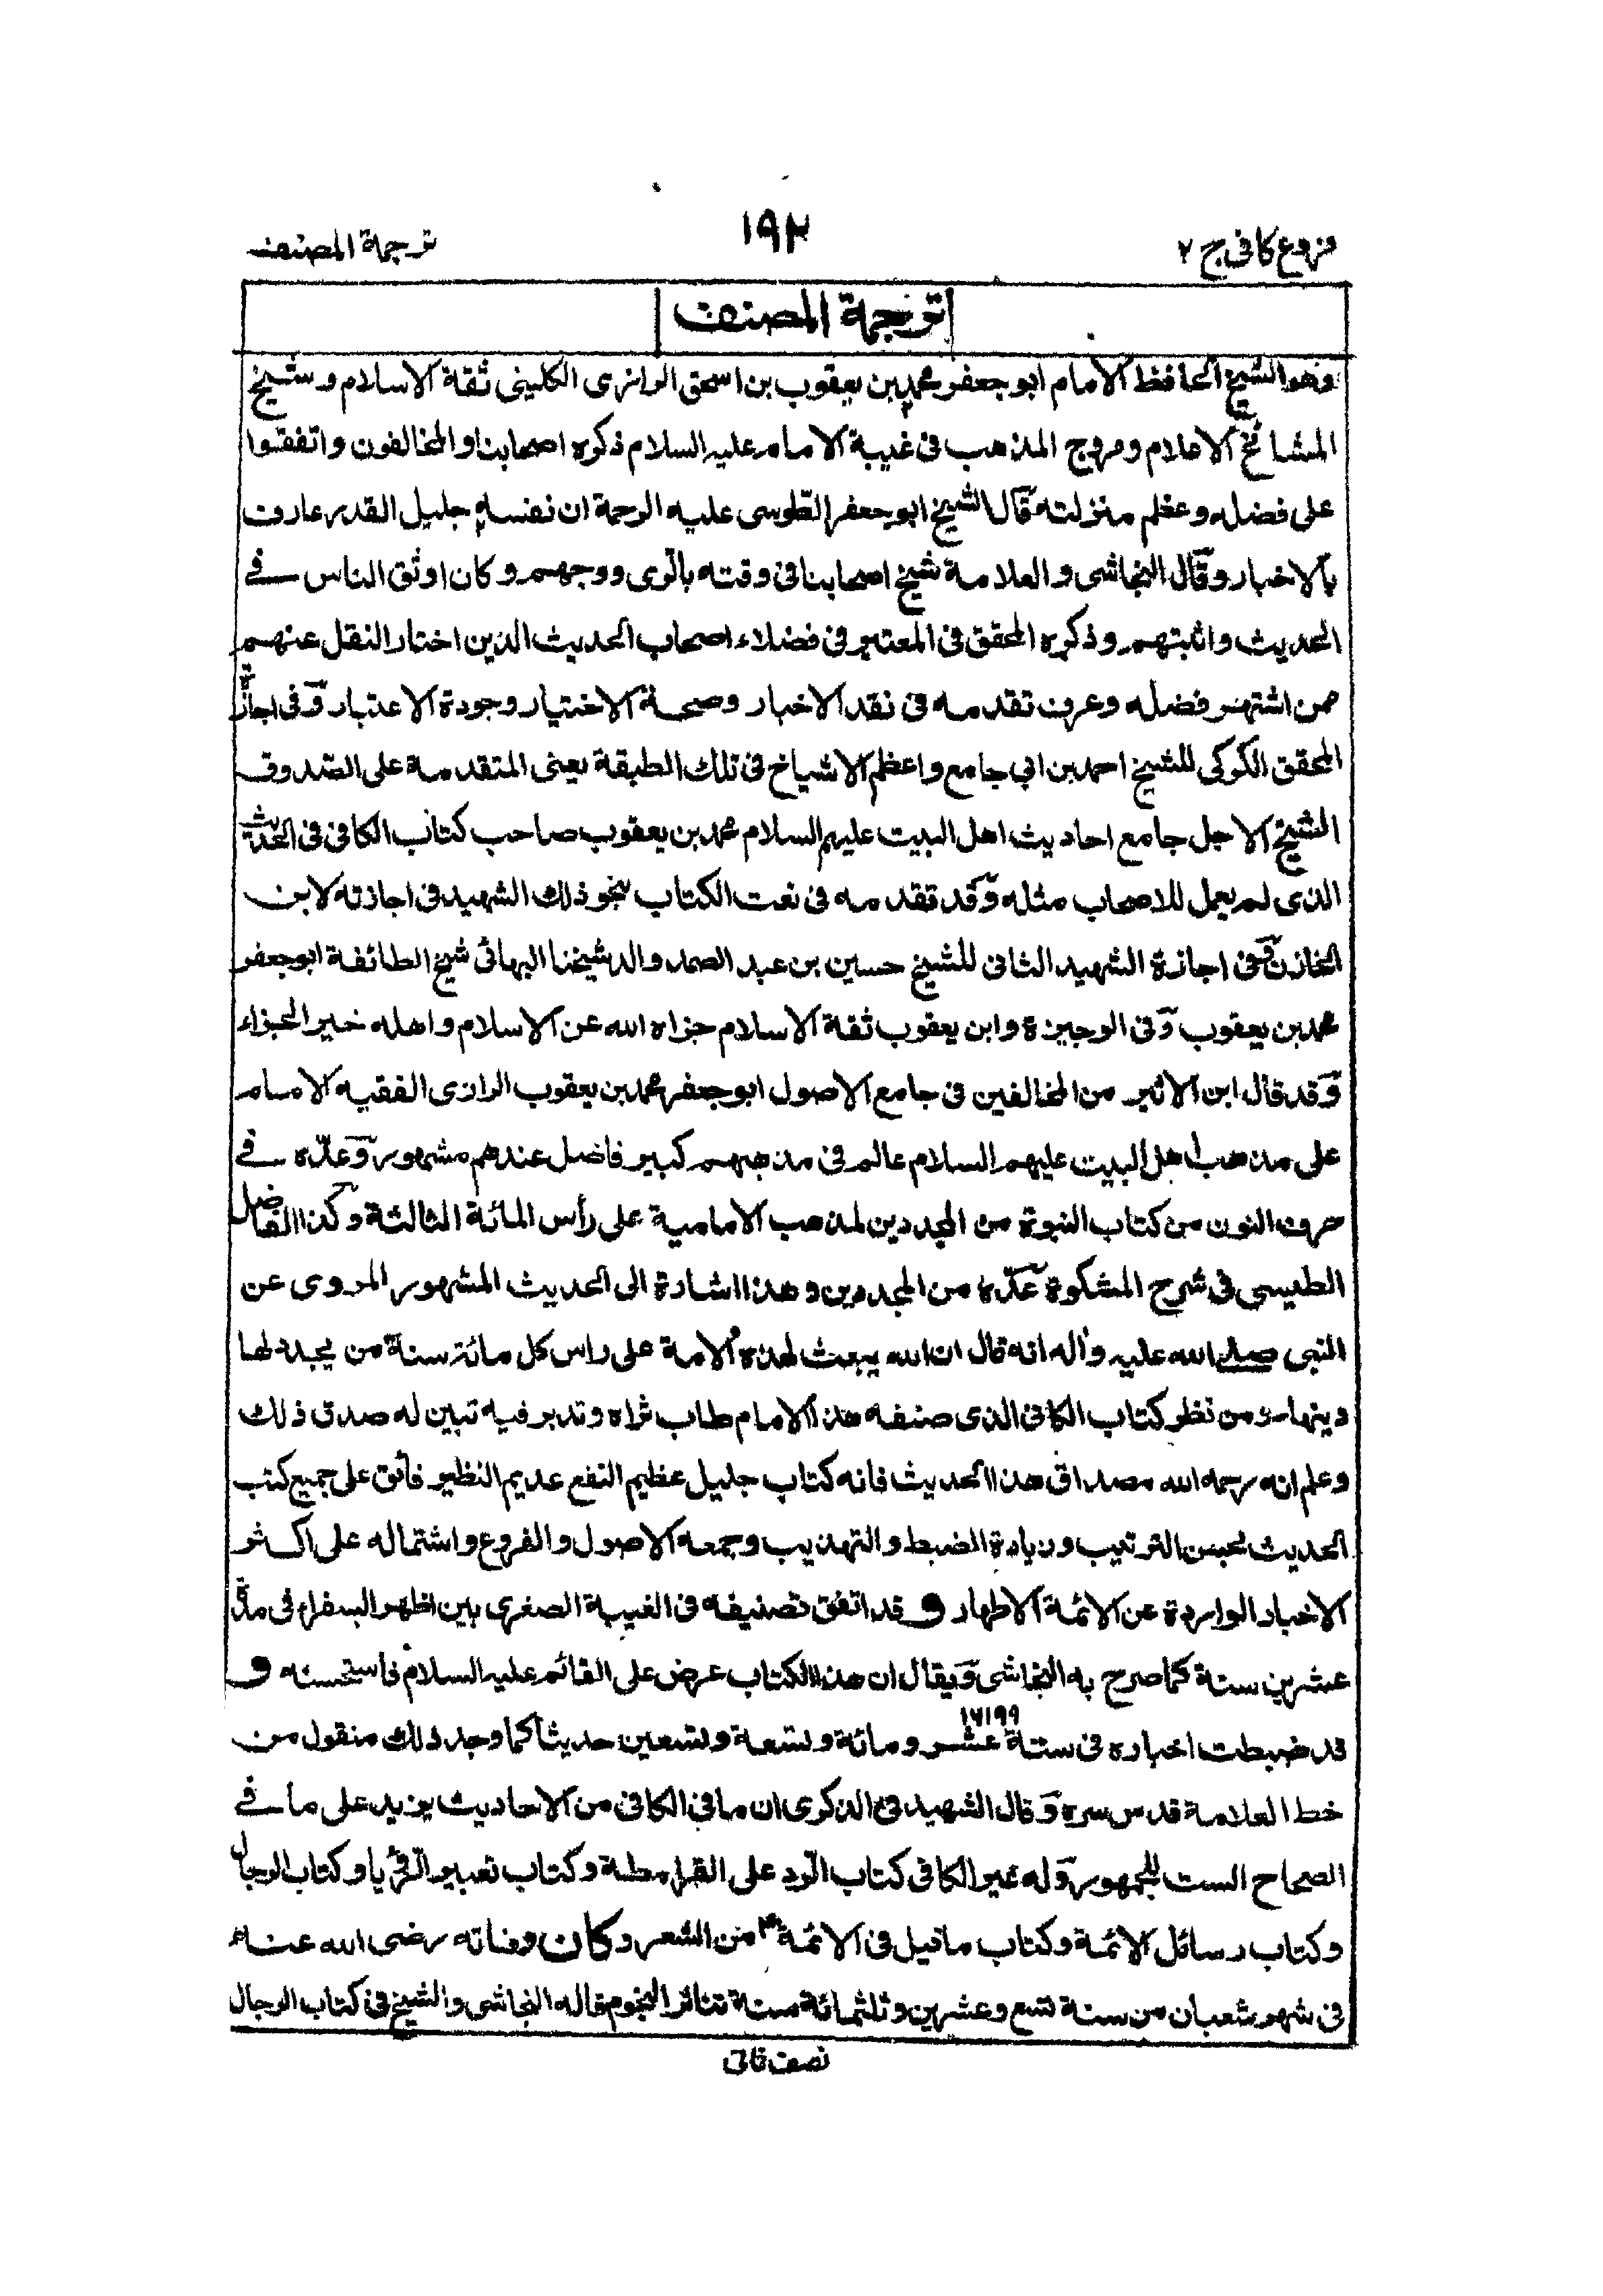 فروع كافى ج ٢
١٩٢
ترجمة المصنف
ترجمة المصنف
وهو الشيخ الحافظ الامام ابو جعفر محمد بن يعقوب بن اسحق الرازى الكلينى ثقة الاسلام وشيخ
المشائخ الاعلام ومروج المذهب فى غيبة الامام عليه السلام ذكره اصحابنا والمخالفون واتفقوا
على فضله وعظم منزلته قال الشيخ ابو جعفر الطوسى عليه الرحمة ان نفسه جليل القدر عارف
بالاخبار وقال النجاشى والعلامة شيخ اصحابنا فى وقته بالرى ووجههم وكان اوثق الناس فى
الحديث واثبتهم وذكره المحقق فى المعتبر فى فضلاء اصحاب الحديث الذين اختار النقل عنهم
ممن اشتهر فضله وعرف تقدمه فى نقد الاخبار وصحة الاختيار وجودة الاعتبار وفى اجازة
المحقق الكركى للشيخ احمد بن ابى جامع واعظم الاشياخ فى تلك الطبقة يعنى المتقدمة على الصدوق
الشيخ الاجل جامع احاديث اهل البيت عليهم السلام محمد بن يعقوب صاحب كتاب الكافى فى الحديث
الذى لم يعمل للاصحاب مثله وقد تقدمه فى نعت الكتاب بنحو ذلك الشهيد فى اجازته لابن
الخازن وفى اجازة الشهيد الثانى للشيخ حسين بن عبد الصمد والد شيخنا البهائى شيخ الطائفة ابو جعفر
محمد بن يعقوب وفى الوجيزة وابن يعقوب ثقة الاسلام جزاه الله عن الاسلام واهله خير الجزاء
وقد قال ابن الاثير من المخالفين فى جامع الاصول ابو جعفر محمد بن يعقوب الرازى الفقيه الامام
على مذهب اهل البيت عليهم السلام عالم فى مذهبهم كبير فاضل عندهم مشهور وعدّه فى
حرف النون من كتاب النبوة من المجددين لمذهب الامامية على رأس المائة الثالثة وكذا الفاضل
الطيبى فى شرح المشكوة عدّه من المجددين وهذا اشارة الى الحديث المشهور المروى عن
النبى صلى الله عليه واله انه قال ان الله يبعث لهذه الامة على راس كل مائة سنة من يجدد لها
دينها ومن نظر كتاب الكافى الذى صنفه هذا الامام طاب ثراه وتدبر فيه تبين له صدق ذلك
وعلم انه رحمه الله مصداق هذا الحديث فانه كتاب جليل عظيم النفع عديم النظير فائق على جميع كتب
الحديث بحسن الترتيب وزيادة الضبط والتهذيب وجمعه الاصول والفروع واشتماله على اكثر
الاخبار الواردة عن الائمة الاطهار و قد اتفق تصنيفه فى الغيبة الصغرى بين اظهر السفراء فى مدة
عشرين سنة كما صرح به النجاشى ويقال ان هذا الكتاب عرض على القائم عليه السلام فاستحسنه و
١٦١٩٩
قد ضبطت اخباره فى ستة عشر ومائة وتسعة وتسعين حديثا كما وجد ذلك منقول من
خط العلامة قدس سره وقال الشهيد فى الذكرى ان ما فى الكافى من الاحاديث يزيد على ما فى
الصحاح الست للجمهور وله غير الكافى كتاب الرد على القرامطة وكتاب تعبير الرؤيا وكتاب الرجال
وكتاب رسائل الائمة وكتاب ما قيل فى الائمةؑ من الشعر وكان وفاته رضى الله عنه
فى شهر شعبان من سنة تسع وعشرين وثلثمائة سنة تناثر النجوم قاله النجاشى والشيخ فى كتاب الرجال
نصف ثانى